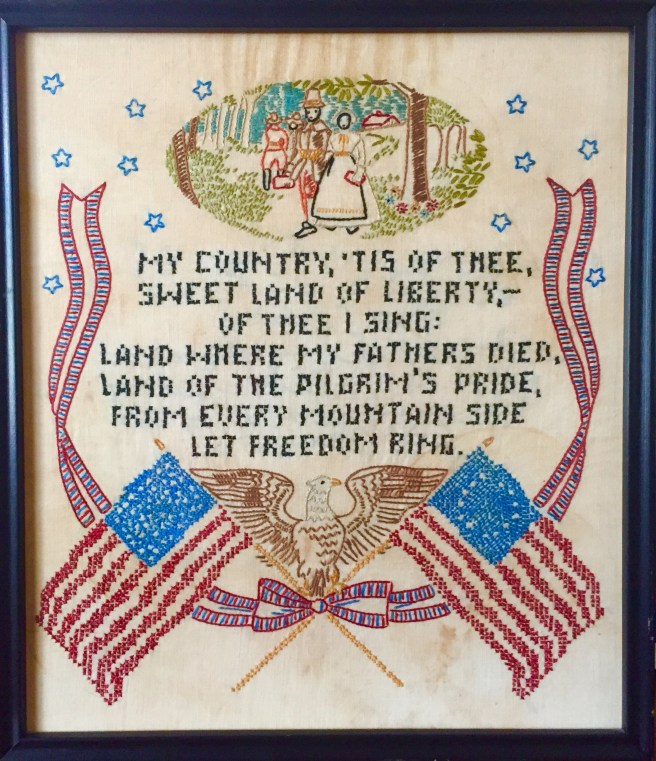 MY COUNTRY, 'TIS OF THEE,
SWEET LAND OF LIBERTY,—
OF THEE I SING:
LAND WHERE MY FATHERS DIED,
LAND OF THE PILGRIM'S PRIDE,
FROM EVERY MOUNTAIN SIDE
LET FREEDOM RING.